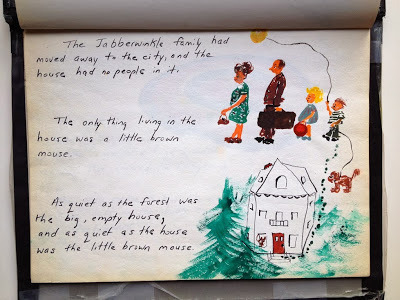 The Jabberwinkle family had
moved away to the city, and the
house had no people in it.
The only thing living in the
house was a little brown
mouse.
As quiet as the forest was
the big, empty house,
and as quiet as the house
was the little brown mouse.